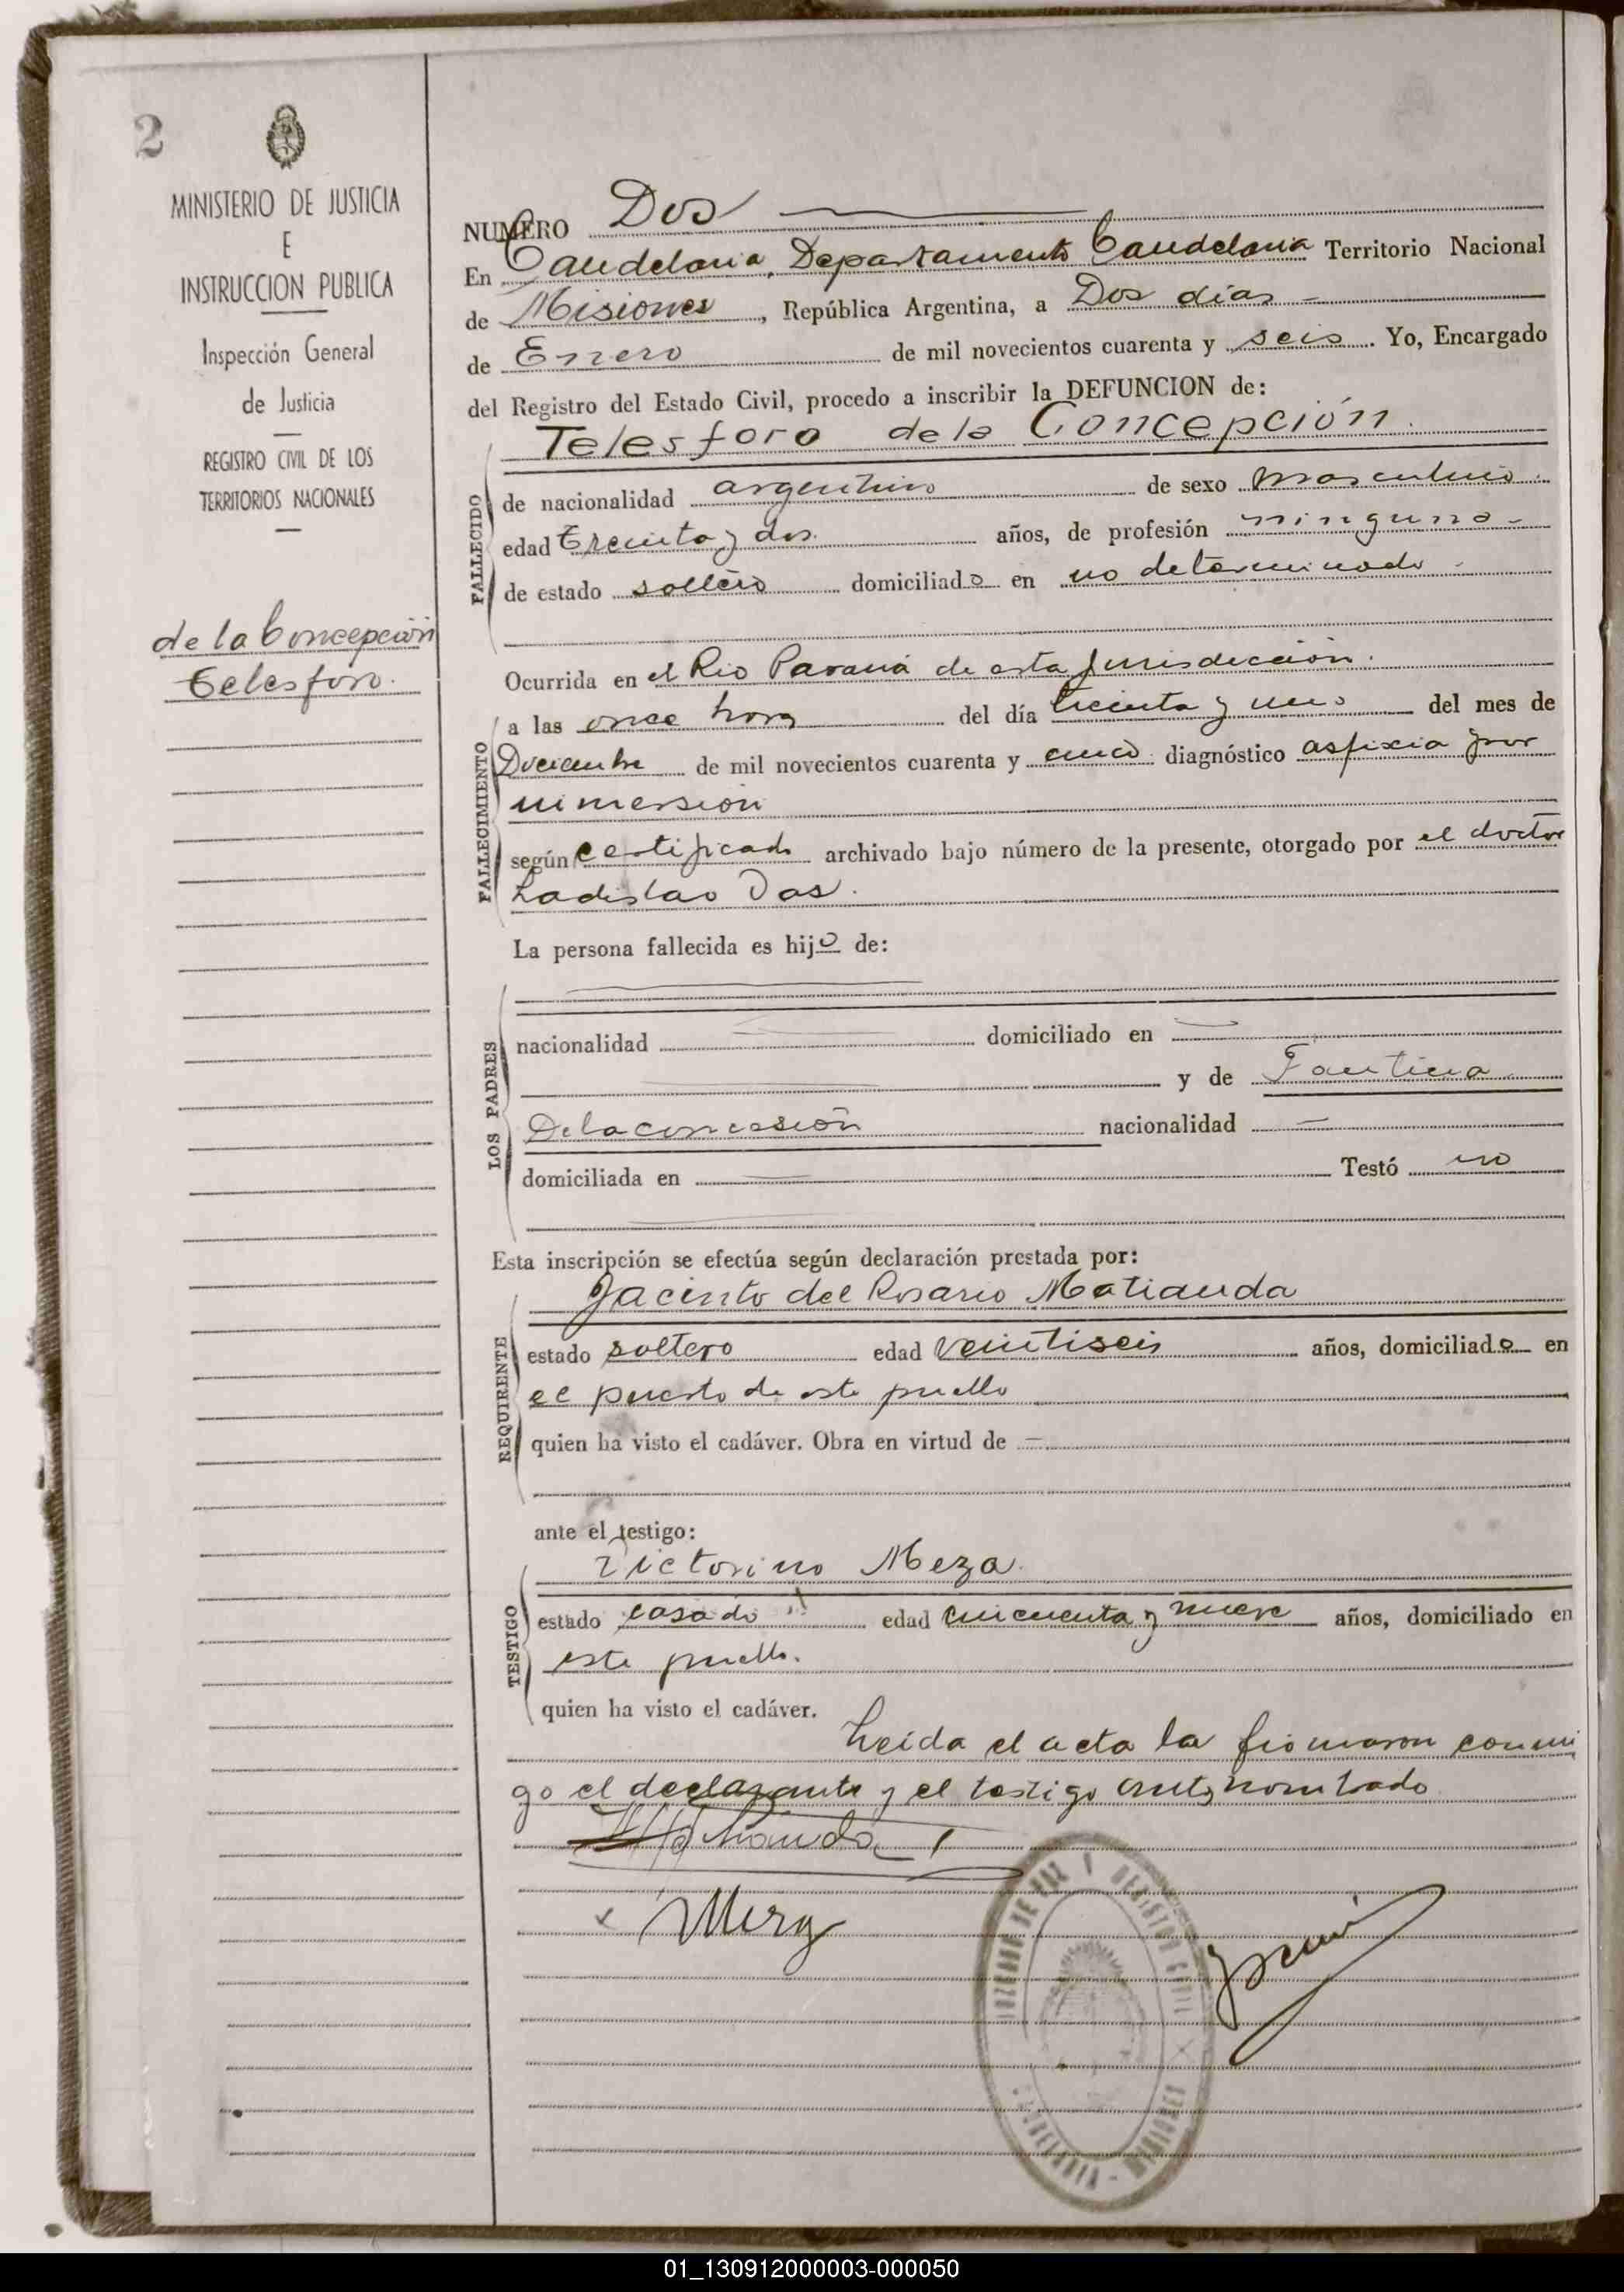 2
MINISTERIO DE JUSTICIA
E
INSTRUCCION PUBLICA
Inspección General
de Justicia
REGISTRO CIVIL DE LOS
TERRITORIOS NACIONALES
de la Concepción
Telesforo.
NUMERO Dos
En Candelaria, Departamento Candelaria Territorio Nacional
de Misiones, República Argentina, a Dos días
de Enero de mil novecientos cuarenta y seis. Yo, Encargado
del Registro del Estado Civil, procedo a inscribir la DEFUNCION de:
Telesforo de la Concepción.
FALLECIDO
de nacionalidad argentino de sexo masculino.
edad Treinta y dos. años, de profesión ninguna
de estado soltero domiciliado en no determinado
Ocurrida en el Rio Paraná de esta Jurisdicción.
FALLECIMIENTO
a las once hora del día treinta y uno del mes de
Diciembre de mil novecientos cuarenta y cinco diagnóstico asfixia por
inmersion
según certificado archivado bajo número de la presente, otorgado por el doctor
Ladislao Das.
La persona fallecida es hijo de:
LOS PADRES
nacionalidad domiciliado en
y de Fautina
De la concesión nacionalidad
domiciliada en Testó no
Esta inscripción se efectúa según declaración prestada por:
Jacinto del Rosario Matianda
REQUIRENTE
estado soltero edad veintiseis años, domiciliado en
el puerto de este pueblo
quien ha visto el cadáver. Obra en virtud de
ante el testigo:
Victorino Meza.
TESTIGO
estado casado edad cincuenta y nueve años, domiciliado en
este pueblo.
quien ha visto el cadáver.
Leída el acta la firmaron conmi
go el declarante y el testigo antes nombrado
Matianda
x Meza
JUZGADO DE PAZ Y REGISTRO CIVIL
CANDELARIA - MISIONES
01_130912000003-000050